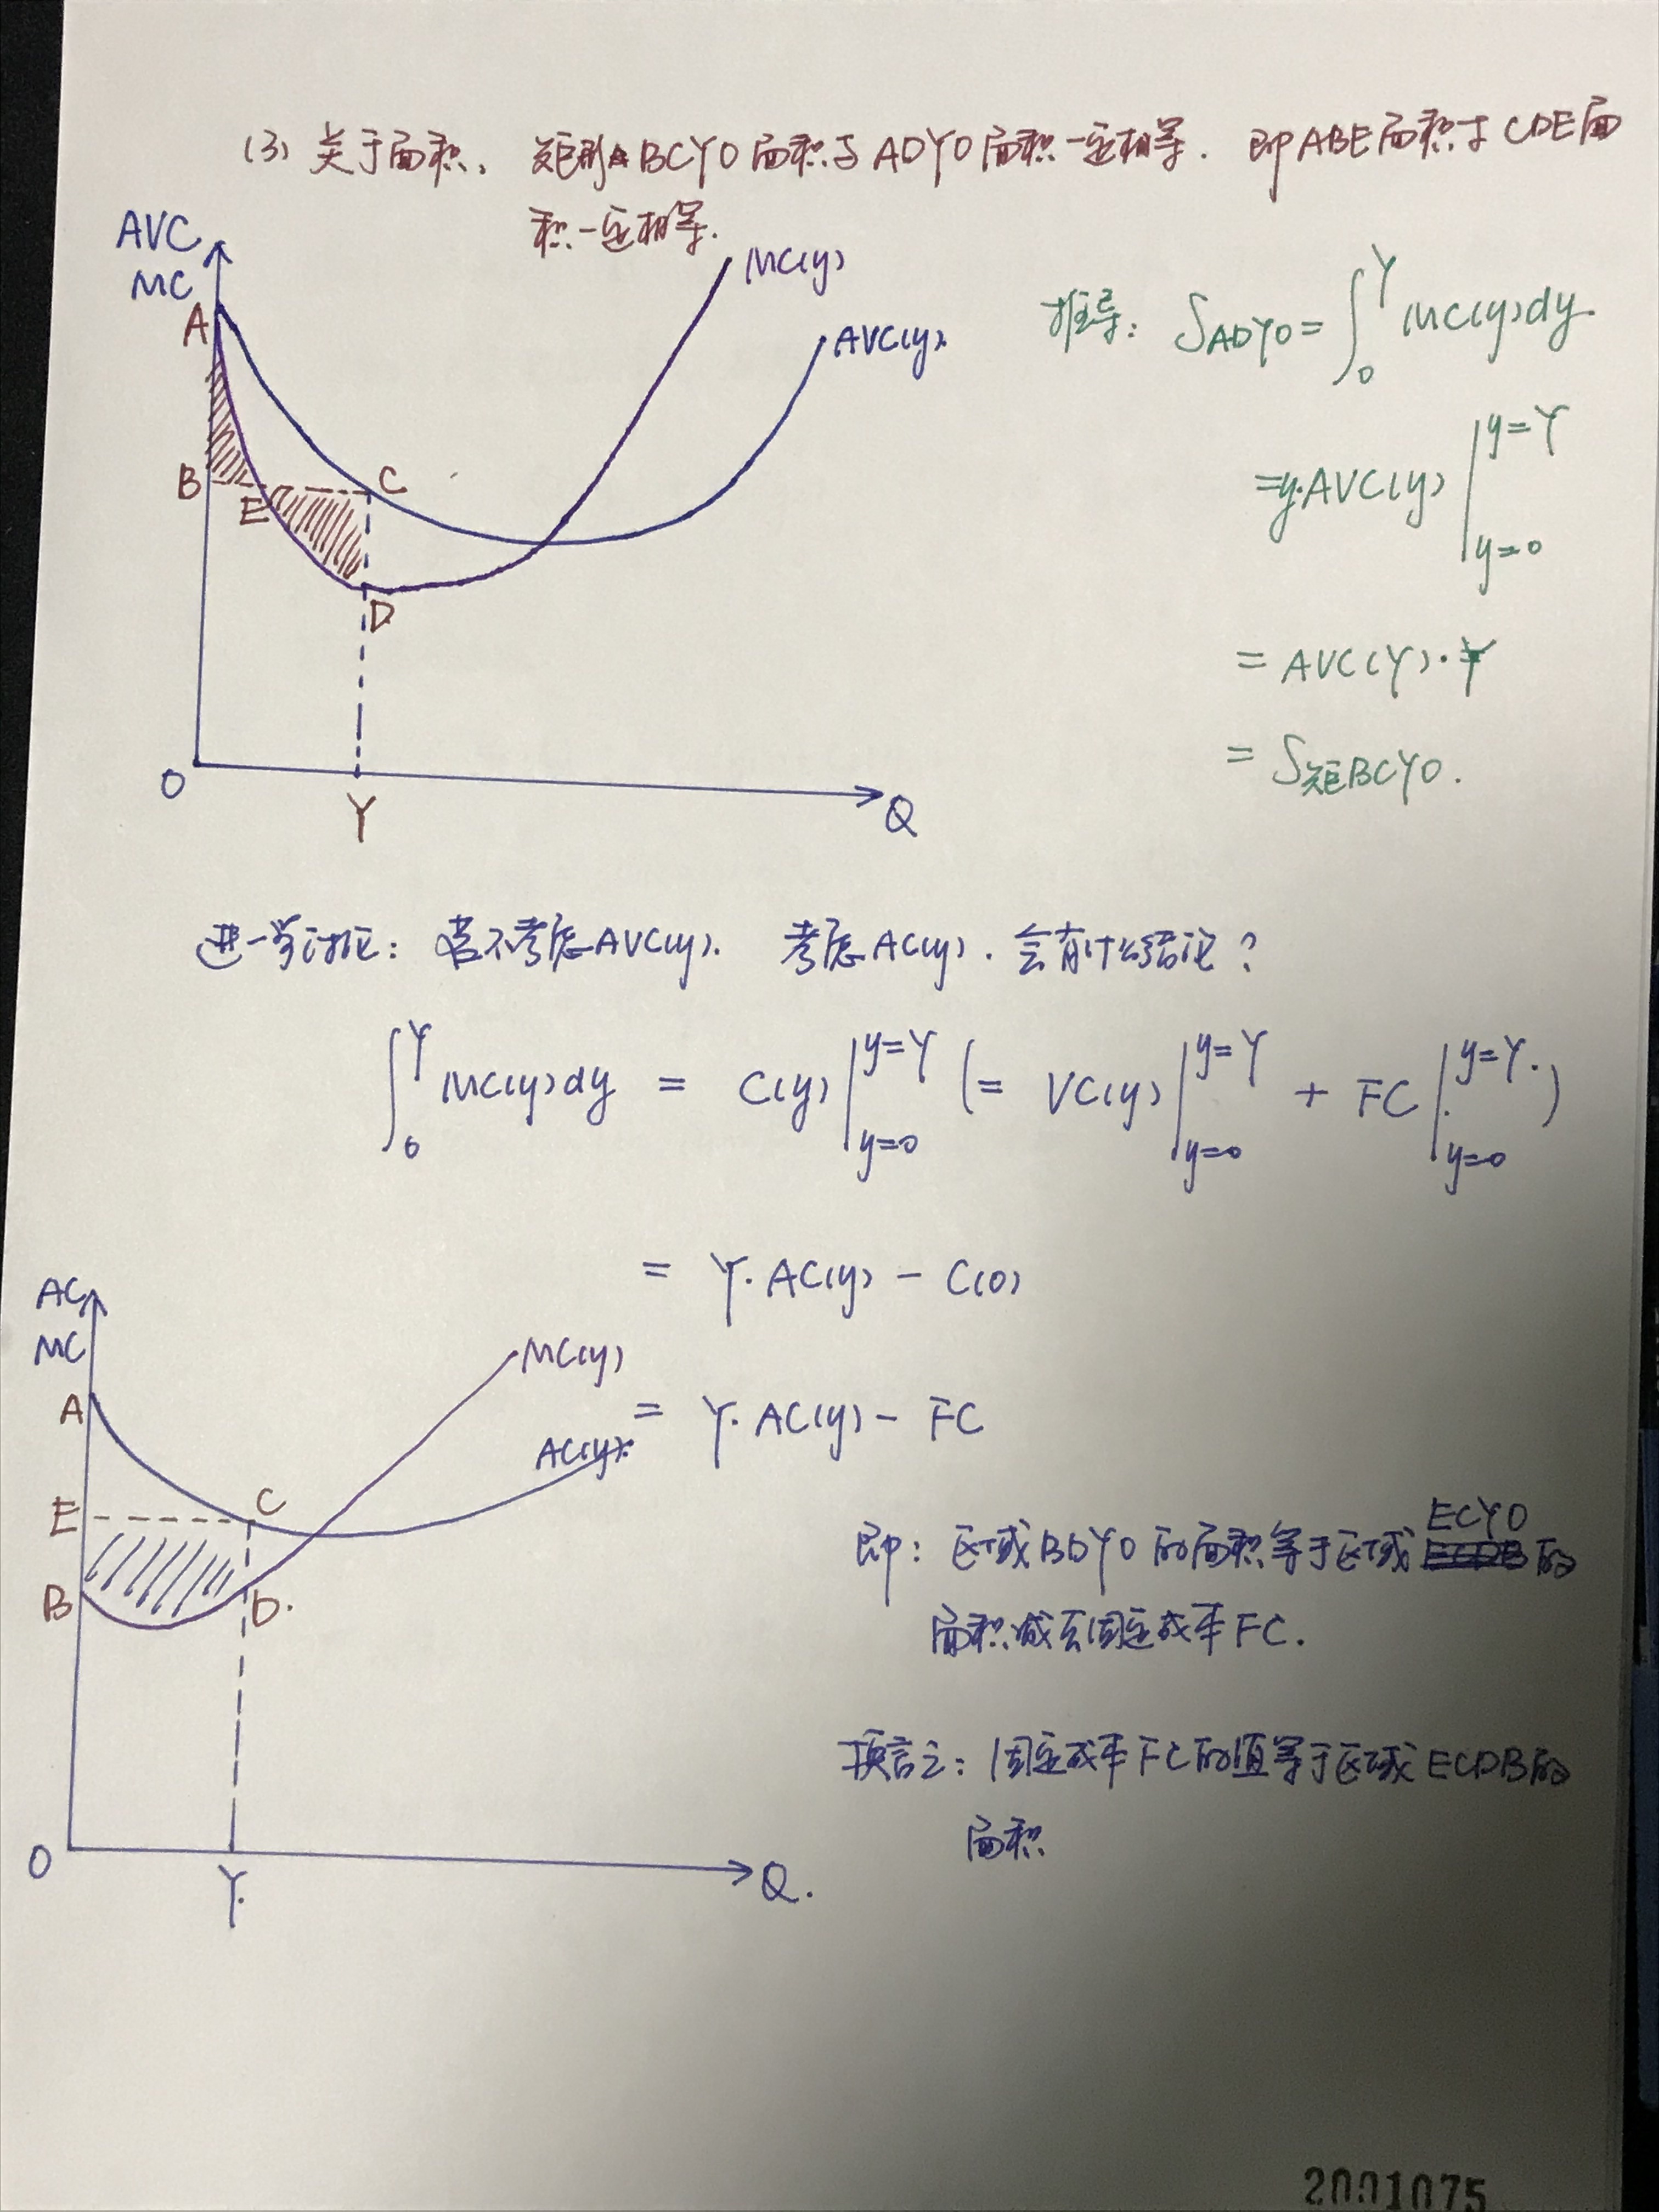 (3) 关于面积. 矩形BCYO面积与ADYO面积一定相等. 即ABE面积于CDE面
积一定相等.
AVC
MC
MC(y)
AVC(y)
A
B
C
E
D
O
Y
Q
推导: S_ADYO = ∫₀^Y MC(y)dy.
= y·AVC(y) |_{y=0}^{y=Y}
= AVC(Y)·Y
= S矩BCYO.
进一步讨论: 若不考虑AVC(y). 考虑AC(y). 会有什么结论?
∫₀^Y MC(y)dy = C(y) |_{y=0}^{y=Y} (= VC(y) |_{y=0}^{y=Y} + FC |_{y=0}^{y=Y}.)
= Y·AC(y) - C(0)
= Y·AC(y) - FC
AC
MC
MC(y)
AC(y)
A
E
C
B
D.
O
Y.
Q.
即: 区域BDYO的面积等于区域ECYO的
面积减去固定成本FC.
换言之: 固定成本FC的值等于区域ECDB的
面积
2001075